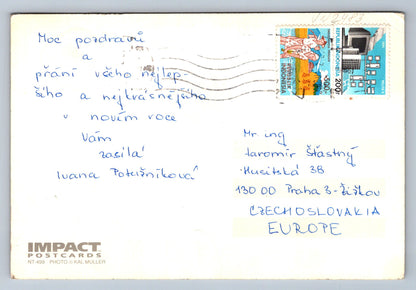 Moc pozdravů
a
přání všeho nejlep-
šího a nejkrásnějšího
v novém roce
Vám
zasílá
Ivana
Mr ing
Jaromír Šťastný
Husitská 38
130 00 Praha 3-Žižkov
CZECHOSLOVAKIA
EUROPE
IMPACT
POSTCARDS
NT-498 · PHOTO © KAL MULLER